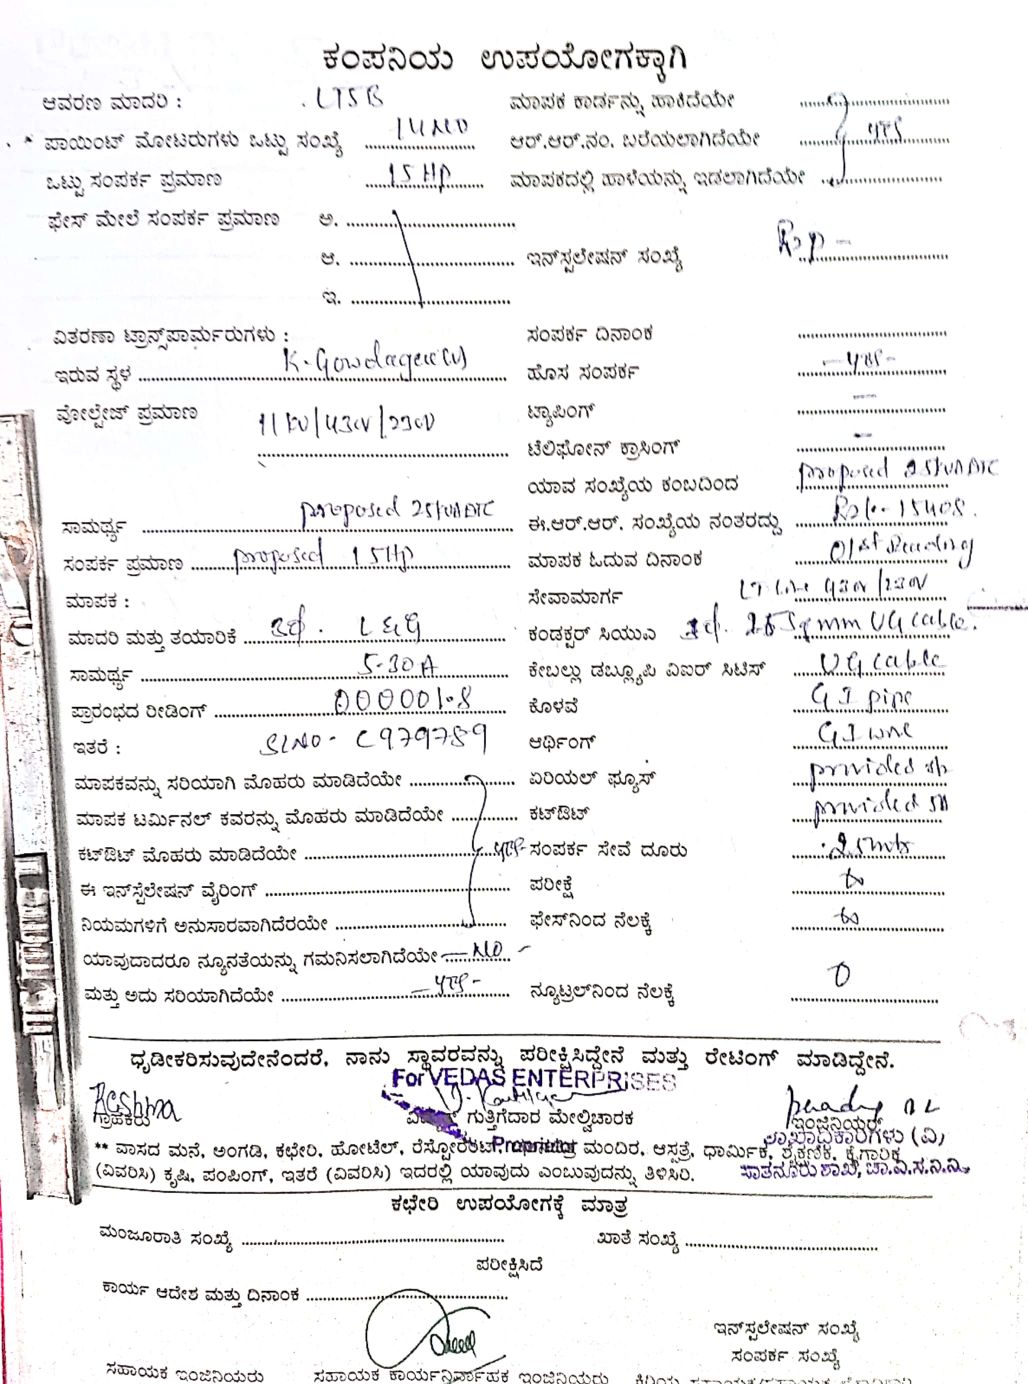 ಕಂಪನಿಯ ಉಪಯೋಗಕ್ಕಾಗಿ
ಆವರಣ ಮಾದರಿ : LT5B ಮಾಪಕ ಕಾರ್ಡನ್ನು ಹಾಕಿದೆಯೇ
* ಪಾಯಿಂಟ್ ಮೋಟರುಗಳು ಒಟ್ಟು ಸಂಖ್ಯೆ 1 UNO ಆರ್.ಆರ್.ನಂ. ಬರೆಯಲಾಗಿದೆಯೇ yes
ಒಟ್ಟು ಸಂಪರ್ಕ ಪ್ರಮಾಣ 15 HP ಮಾಪಕದಲ್ಲಿ ಹಾಳೆಯನ್ನು ಇಡಲಾಗಿದೆಯೇ
ಫೇಸ್ ಮೇಲೆ ಸಂಪರ್ಕ ಪ್ರಮಾಣ ಅ.
ಆ. ಇನ್‌ಸ್ಪಲೇಷನ್ ಸಂಖ್ಯೆ
ಇ.
ವಿತರಣಾ ಟ್ರಾನ್ಸ್‌ಪಾರ್ಮರುಗಳು : ಸಂಪರ್ಕ ದಿನಾಂಕ
ಇರುವ ಸ್ಥಳ K. Gowdagere (v) ಹೊಸ ಸಂಪರ್ಕ - yes -
ವೋಲ್ಟೇಜ್ ಪ್ರಮಾಣ 11KV/430V/230V ಟ್ಯಾಪಿಂಗ್ -
ಟೆಲಿಫೋನ್ ಕ್ರಾಸಿಂಗ್ -
ಯಾವ ಸಂಖ್ಯೆಯ ಕಂಬದಿಂದ proposed 25KVA DTC
ಸಾಮರ್ಥ್ಯ proposed 25KVA DTC ಈ.ಆರ್.ಆರ್. ಸಂಖ್ಯೆಯ ನಂತರದ್ದು 15408.
ಸಂಪರ್ಕ ಪ್ರಮಾಣ proposed 15HP ಮಾಪಕ ಓದುವ ದಿನಾಂಕ 01st Reading
ಮಾಪಕ : ಸೇವಾಮಾರ್ಗ LT Line 430V/230V
ಮಾದರಿ ಮತ್ತು ತಯಾರಿಕೆ 3ф. L&G ಕಂಡಕ್ಟರ್ ಸಿಯುಎ 25 Sqmm UG cable.
ಸಾಮರ್ಥ್ಯ 5-30A ಕೇಬಲ್ಲು ಡಬ್ಲ್ಯೂಪಿ ವಿಐರ್ ಸಿಟಿಸ್ UG cable
ಪ್ರಾರಂಭದ ರೀಡಿಂಗ್ 000001.8 ಕೊಳವೆ GI pipe
ಇತರೆ : SLNO - C979789 ಆರ್ಥಿಂಗ್ GI wire
ಮಾಪಕವನ್ನು ಸರಿಯಾಗಿ ಮೊಹರು ಮಾಡಿದೆಯೇ ಏರಿಯಲ್ ಫ್ಯೂಸ್ provided
ಮಾಪಕ ಟರ್ಮಿನಲ್ ಕವರನ್ನು ಮೊಹರು ಮಾಡಿದೆಯೇ ಕಟ್‌ಔಟ್ provided
ಕಟ್‌ಔಟ್ ಮೊಹರು ಮಾಡಿದೆಯೇ yes ಸಂಪರ್ಕ ಸೇವೆ ದೂರು 25mtr
ಈ ಇನ್‌ಸ್ಪೆಲೇಷನ್ ವೈರಿಂಗ್ ಪರೀಕ್ಷೆ ∞
ನಿಯಮಗಳಿಗೆ ಅನುಸಾರವಾಗಿದೆರಯೇ ಫೇಸ್‌ನಿಂದ ನೆಲಕ್ಕೆ ∞
ಯಾವುದಾದರೂ ನ್ಯೂನತೆಯನ್ನು ಗಮನಿಸಲಾಗಿದೆಯೇ - NO -
ಮತ್ತು ಅದು ಸರಿಯಾಗಿದೆಯೇ - yes - ನ್ಯೂಟ್ರಲ್‌ನಿಂದ ನೆಲಕ್ಕೆ 0
ಧೃಡೀಕರಿಸುವುದೇನೆಂದರೆ, ನಾನು ಸ್ಥಾವರವನ್ನು ಪರೀಕ್ಷಿಸಿದ್ದೇನೆ ಮತ್ತು ರೇಟಿಂಗ್ ಮಾಡಿದ್ದೇನೆ.
For VEDAS ENTERPRISES
Reshma
ಗ್ರಾಹಕರು ಗುತ್ತಿಗೆದಾರ ಮೇಲ್ವಿಚಾರಕ ಇಂಜಿನಿಯರ್
Proprietor ಶಾಖಾಧಿಕಾರಿಗಳು (ವಿ)
** ವಾಸದ ಮನೆ, ಅಂಗಡಿ, ಕಛೇರಿ, ಹೋಟೆಲ್, ಮಂದಿರ, ಆಸ್ಪತ್ರೆ, ಧಾರ್ಮಿಕ, ಶೈಕ್ಷಣಿಕ, ಕೈಗಾರಿಕ
(ವಿವರಿಸಿ) ಕೃಷಿ, ಪಂಪಿಂಗ್, ಇತರೆ (ವಿವರಿಸಿ) ಇದರಲ್ಲಿ ಯಾವುದು ಎಂಬುವುದನ್ನು ತಿಳಿಸಿರಿ. ಸಾತನೂರು ಶಾಖೆ, ಚಾ.ವಿ.ಸ.ನಿ.ನಿ.
ಕಛೇರಿ ಉಪಯೋಗಕ್ಕೆ ಮಾತ್ರ
ಮಂಜೂರಾತಿ ಸಂಖ್ಯೆ ಖಾತೆ ಸಂಖ್ಯೆ
ಪರೀಕ್ಷಿಸಿದೆ
ಕಾರ್ಯ ಆದೇಶ ಮತ್ತು ದಿನಾಂಕ
ಇನ್‌ಸ್ಪಲೇಷನ್ ಸಂಖ್ಯೆ
ಸಂಪರ್ಕ ಸಂಖ್ಯೆ
ಸಹಾಯಕ ಇಂಜಿನಿಯರು ಸಹಾಯಕ ಕಾರ್ಯನಿರ್ವಾಹಕ ಇಂಜಿನಿಯರು